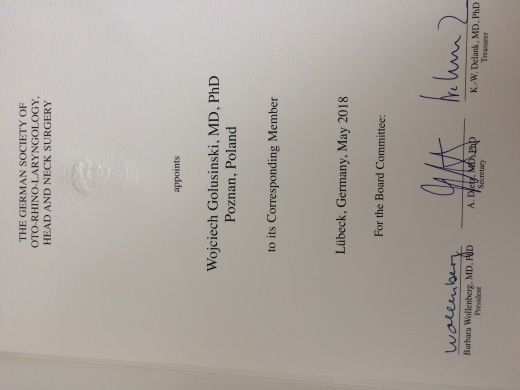 THE GERMAN SOCIETY OF
OTO-RHINO-LARYNGOLOGY,
HEAD AND NECK SURGERY
appoints
Wojciech Golusinski, MD, PhD
Poznan, Poland
to its Corresponding Member
Lübeck, Germany, May 2018
For the Board Committee:
Wollenberg
Barbara Wollenberg, MD, PhD
President
A. Dietz, MD, PhD
Secretary
K.-W. Delank, MD, PhD
Treasurer